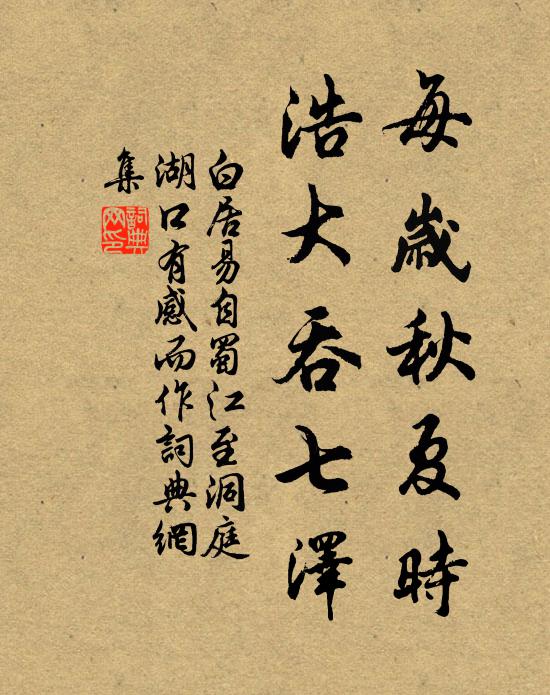 每歲秋夏時
浩大吞七澤
白居易自蜀江至洞庭
湖口有感而作詞典網
集
詞典网印